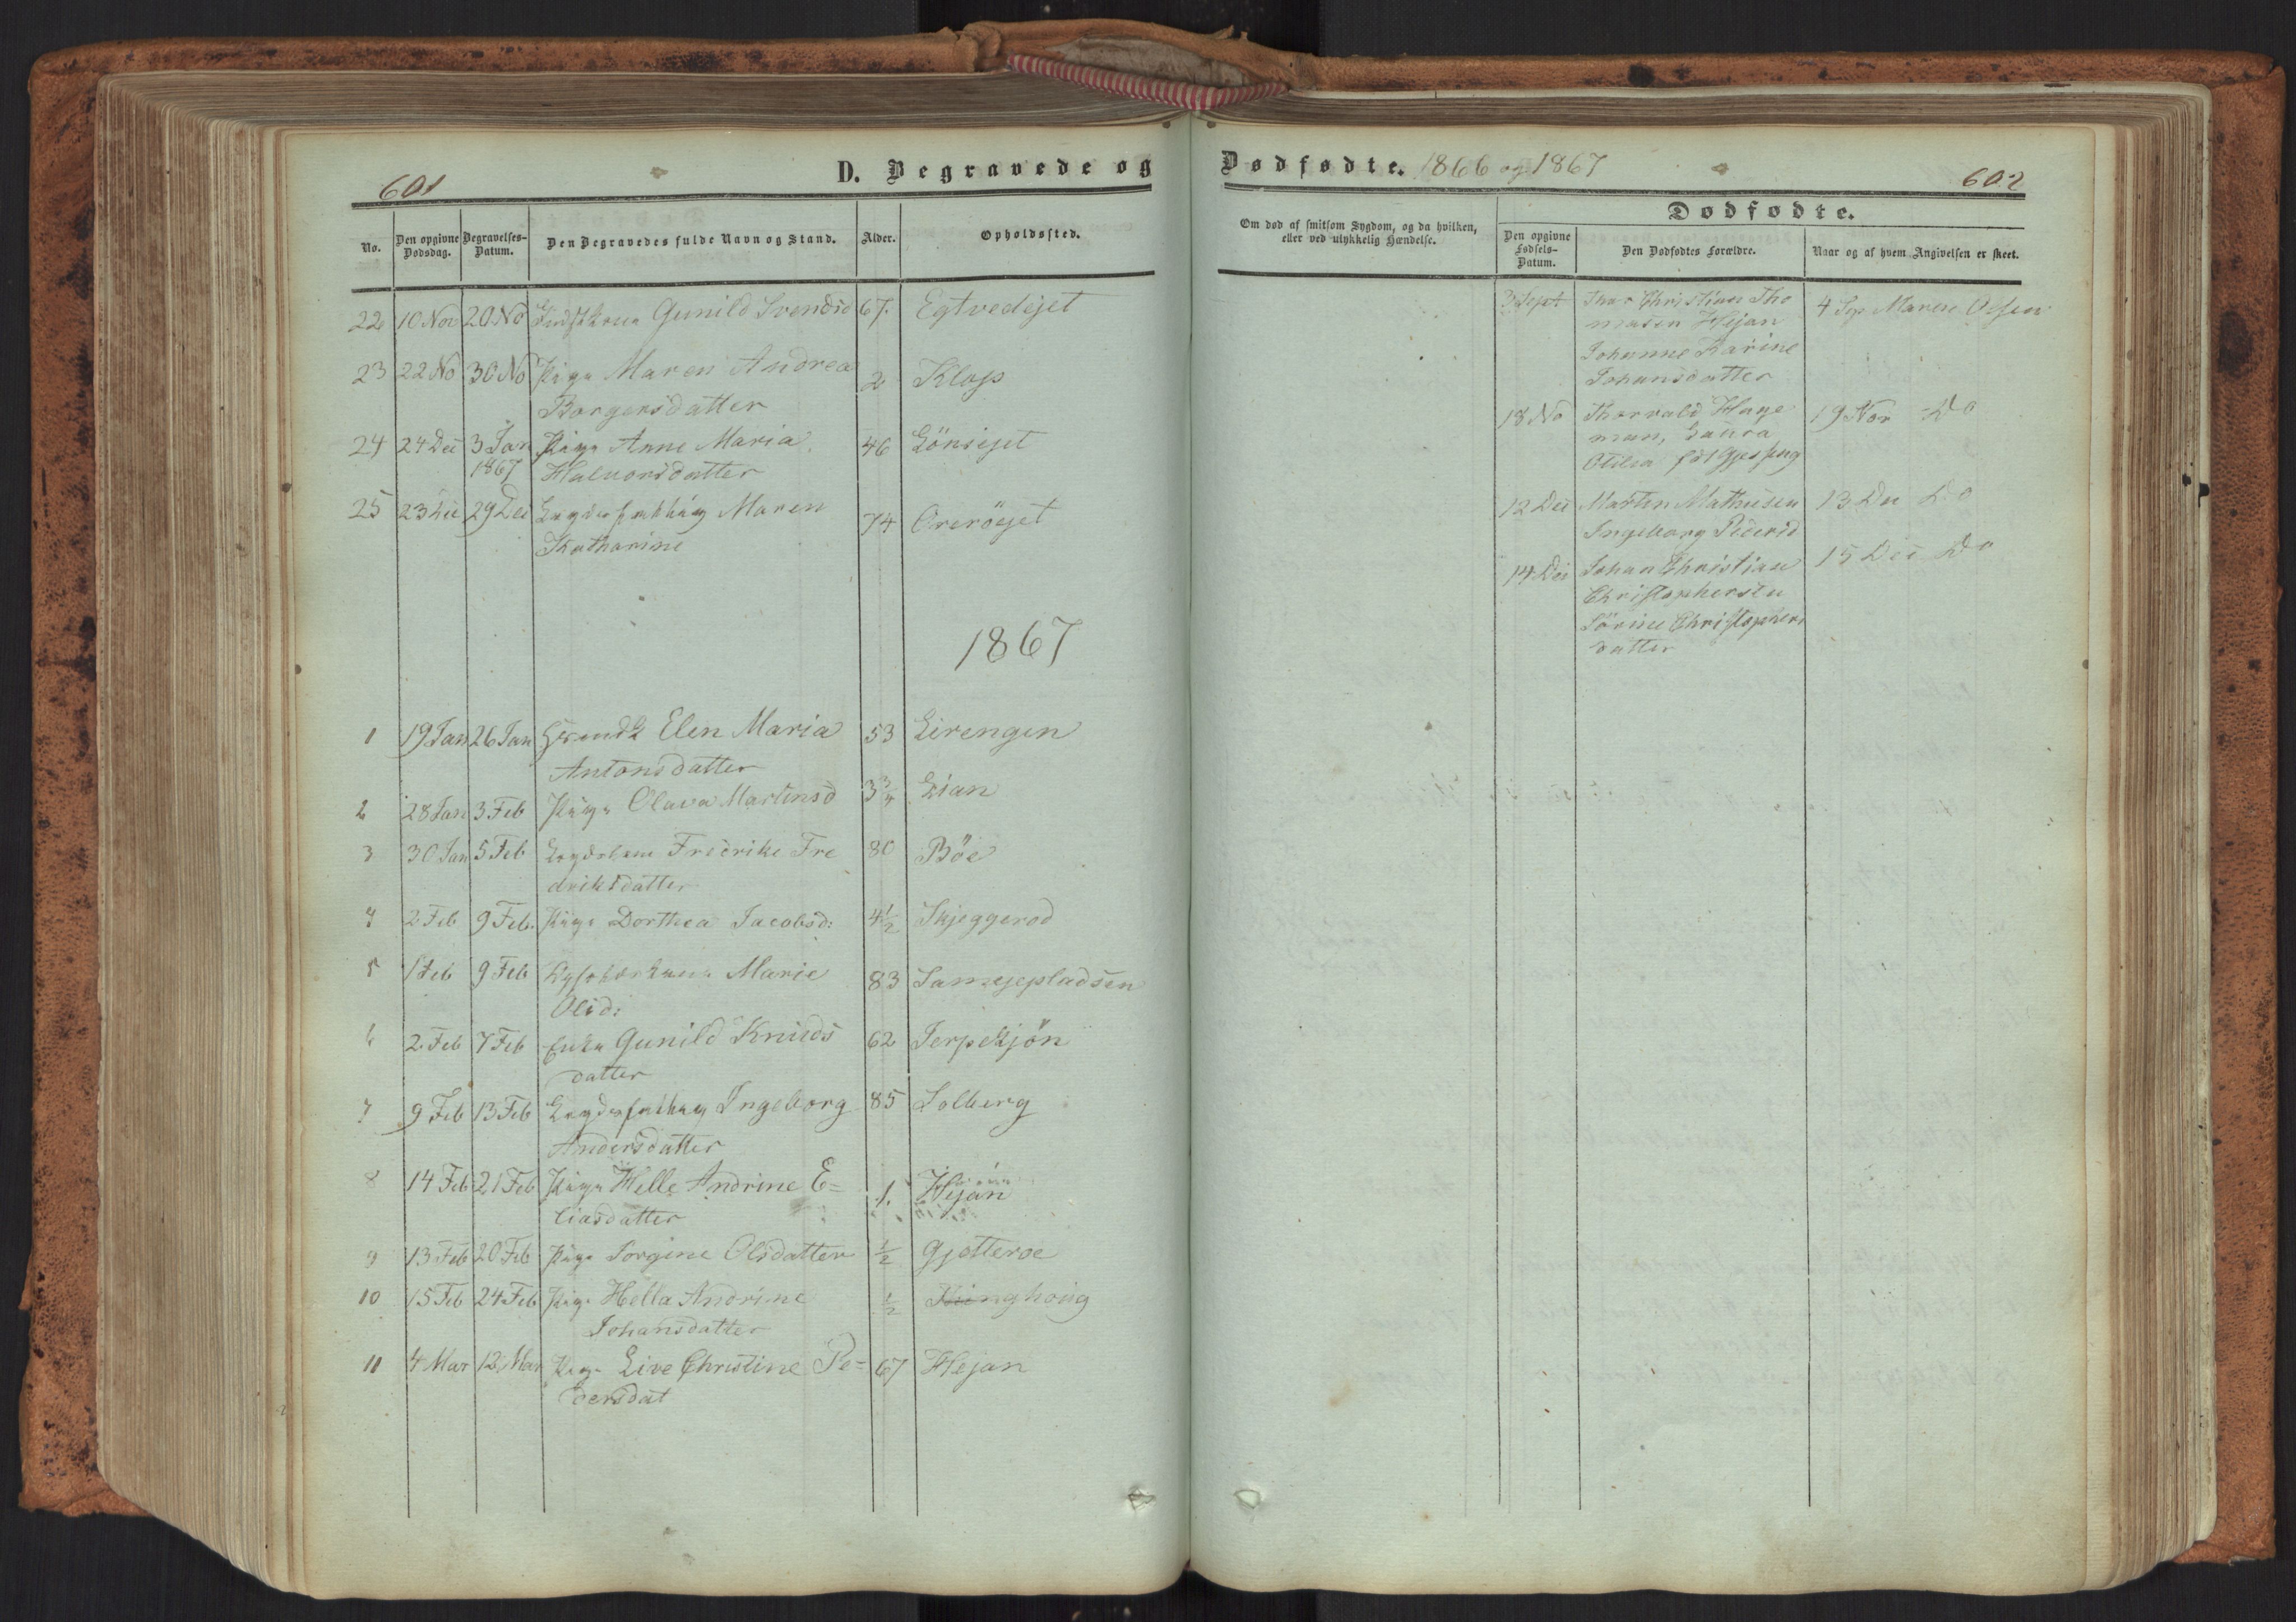 601
D. Begravede og
No.
Den opgivne Dødsdag.
Begravelses-Datum.
Den Begravedes fulde Navn og Stand.
Alder.
Opholdssted.
22 10 Nov 20 No Gunild Svendsd 67. Egtvedejet
23 22 No 30 No Pige Maren Andrea 2 Klop
Borgersdatter
24 24 Dec 3 Jan Pige Anne Maria 46 Lönsejet
1867 Halvorsdatter
25 23 Dec 29 Dec Maren 74 Oreröejet
Katharine
1867
1 19 Jan 26 Jan Elen Maria 53 Eirengen
Antonsdatter
2 28 Jan 3 Feb Pige Olava Martinsd 3 3/4 Lian
3 30 Jan 5 Feb Fredrike Fre 80 Böe
driksdatter
4 2 Feb 9 Feb. Pige Dorthea Jacobsd: 4 1/2 Skjeggerod
5 1 Feb 9 Feb Marie 83 Samejepladsen
Olsd:
6 2 Feb 7 Feb Enke Gunild Knuds 62 Jerpekjön
datter
7 9 Feb 13 Feb Ingeborg 85 Solberg
Andersdatter
8 14 Feb 21 Feb Pige Helle Andrine E= 1. Hejan
liasdatter
9 13 Feb 20 Feb Pige Sorgine Olsdatter 1/2 Gjotteroe
10 15 Feb 24 Feb Pige Hella Andrine 1/2
Johansdatter
11 4 Mar 12 Mar Pige Live Christine Pe= 67 Hejan
dersdat
Dødfødte. 1866 og 1867
602
Om død af smitsom Sygdom, og da hvilken,
eller ved ulykkelig Hændelse.
Dødfødte.
Den opgivne Fødsels-Datum.
Den Dødfødtes Forældre.
Naar og af hvem Angivelsen er skeet.
3 Sept Christian Tho 4 Sep Maren Olsen
masen Hejan
Johanne Karine
Johansdatter
18 No Thorvald Hage 19 Nov Do
man, Laura
Otilia född
12 Dec Martin Mathisen 13 Dec Do
Ingeborg Pedersd
14 Dec Johan Christian 15 Dec Do
Christophersen
Sörine Christophers
datter